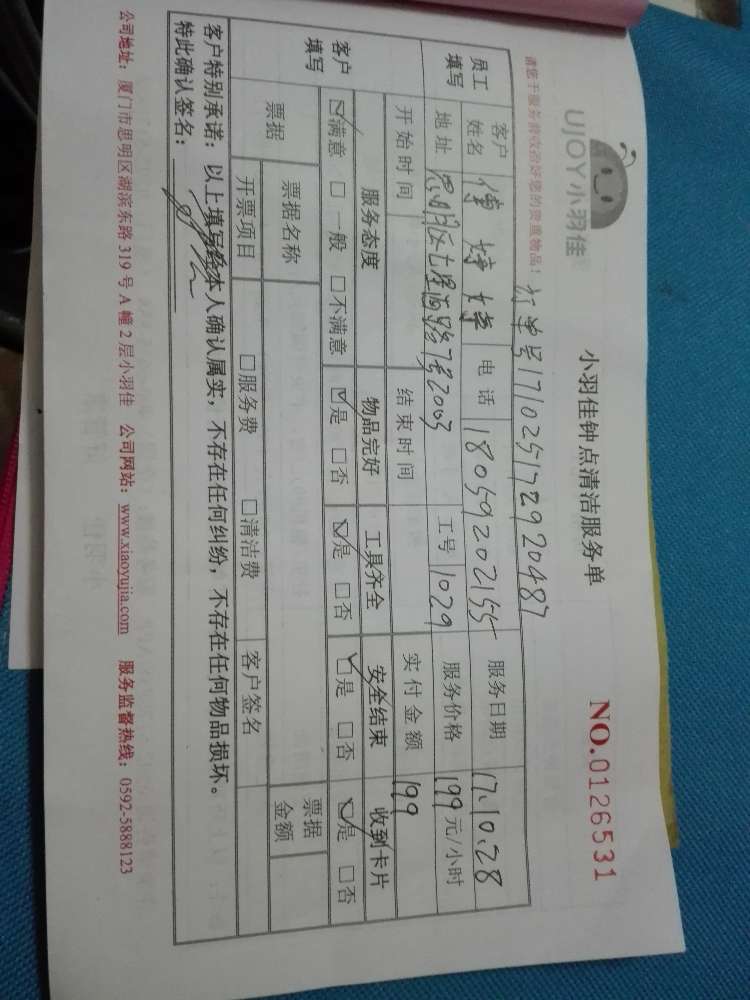 UJOY小羽佳
小羽佳钟点清洁服务单
NO.0126531
请您于服务前收存好您的贵重物品! 订单号171025172920487
员工填写 客户姓名 婷婷 电话 18059202155 服务日期 17.10.28
地址 思明区七星西路7号2003 工号 1029 服务价格 199元/小时
开始时间 结束时间 实付金额 199
客户填写 服务态度 物品完好 工具齐全 安全结束 收到卡片
☑满意 □一般 □不满意 ☑是 □否 ☑是 □否 ☑是 □否 ☑是 □否
票据 票据名称 票据金额
开票项目 □服务费 □清洁费 客户签名
客户特别承诺：以上填写经本人确认属实，不存在任何纠纷，不存在任何物品损坏。
特此确认签名：
公司地址：厦门市思明区湖滨东路319号A幢2层小羽佳 公司网站：www.xiaoyujia.com 服务监督热线：0592-5888123